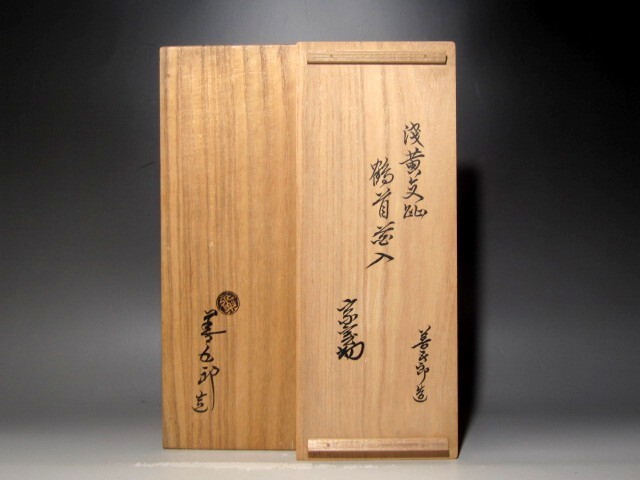 淺黄交趾
鶴首花入
善五郎造
善五郎造